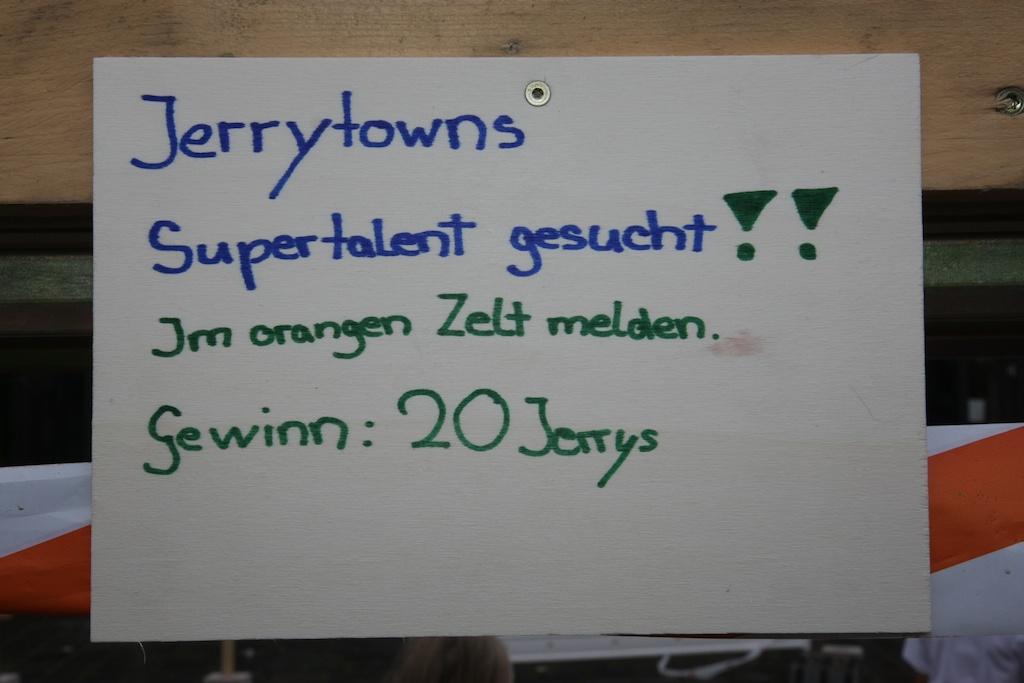 Jerrytowns
Supertalent gesucht!!
Im orangen Zelt melden.
Gewinn: 20 Jerrys